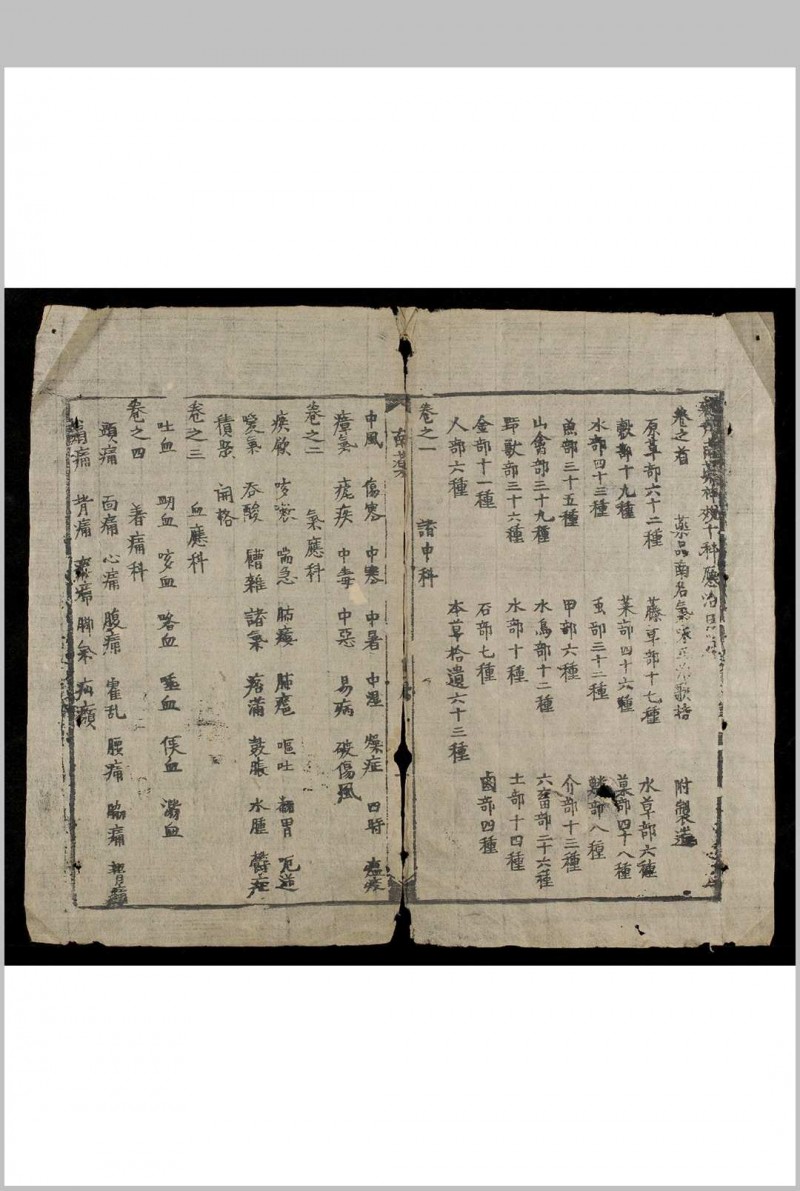 新刊南藥神效十科應治目錄
卷之首 藥品南名氣味正治歌括 附製造
原草部六十二種 藤草部十七種 水草部六種
穀部十九種 菜部四十六種 菓部四十八種
水部四十三種 虫部三十二種 鱗部八種
魚部三十五種 甲部六種 介部十三種
山禽部三十九種 水鳥部十二種 六畜部二十六種
野獸部三十六種 水部十種 土部十四種
金部十一種 石部七種 鹵部四種
人部六種 本草拾遺六十三種
卷之一 諸中科
南藥
中風 傷寒 中寒 中暑 中濕 燥症 四時 瘟疫
瘴氣 瘧疾 中毒 中惡 易病 破傷風
卷之二 氣應科
痰飲 咳嗽 喘急 肺痿 肺癰 嘔吐 翻胃 呃逆
噯氣 吞酸 嘈雜 諸氣 痞滿 鼓脹 水腫 欝症
積聚 関格
卷之三 血應科
吐血 衂血 咳血 咯血 唾血 便血 溺血
卷之四 着痛科
頭痛 面痛 心痛 腹痛 霍乱 腰痛 脇痛 臂痛
肩痛 背痛 脚氣